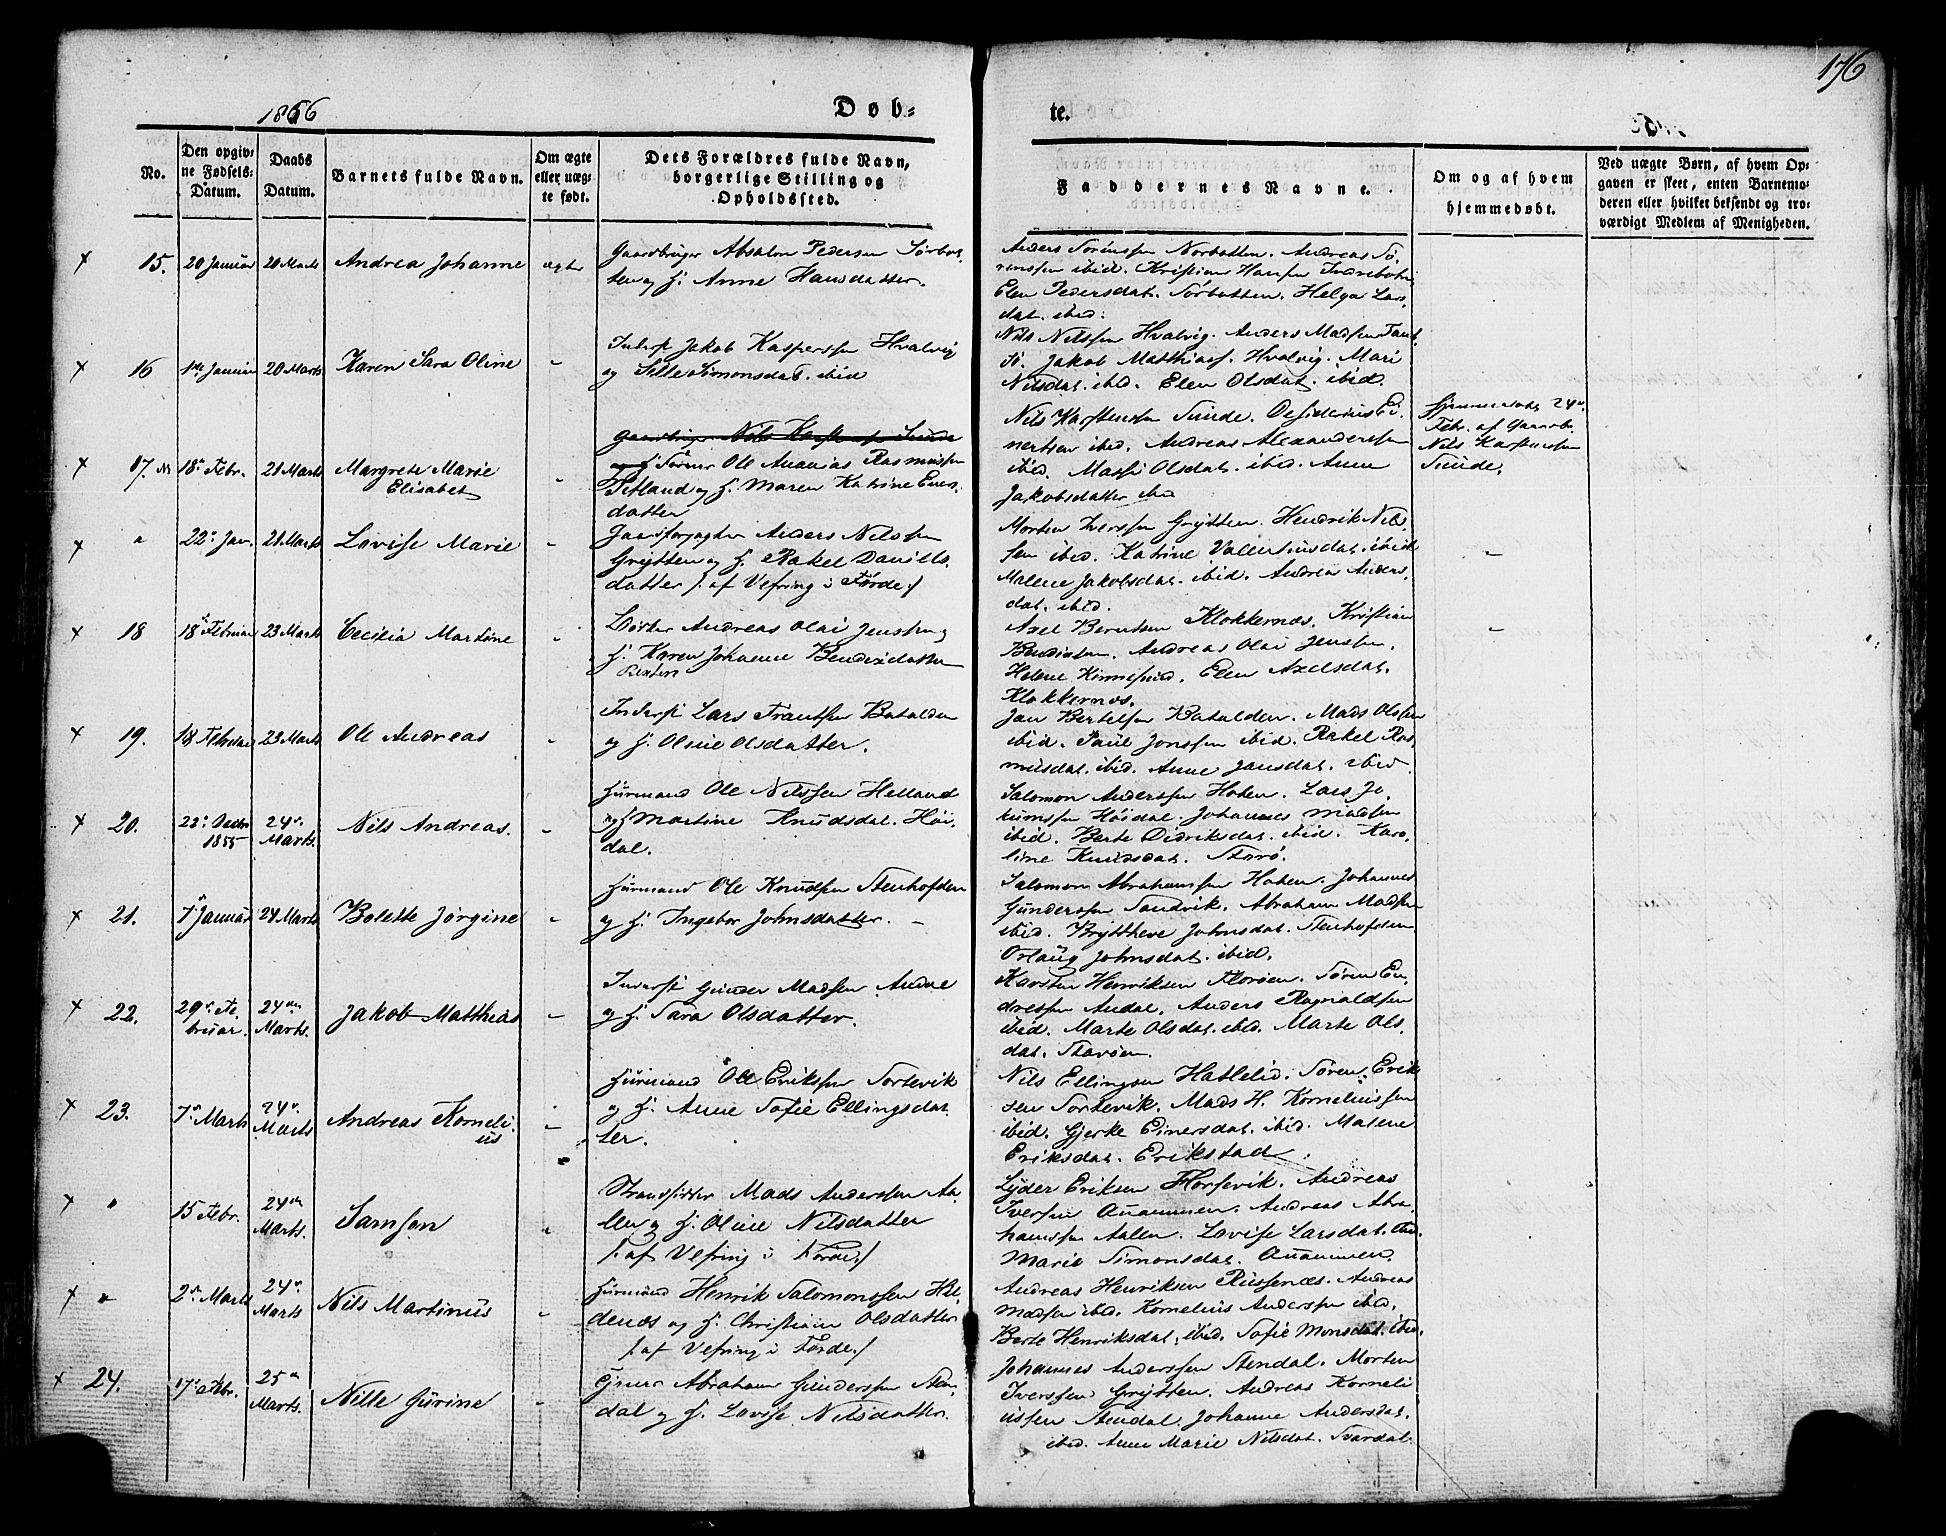 176
1856
Døb=
te.
No.
Den opgiv-
ne Fødsels-
Datum.
Daabs
Datum.
Barnets fulde Navn.
Om ægte
eller uæg-
te født.
Dets Forældres fulde Navn,
borgerlige Stilling og
Opholdssted.
Faddernes Navne.
Om og af hvem
hjemmedøbt.
Ved uægte Børn, af hvem Op-
gaven er skeet, enten Barnemo-
deren eller hvilket bekjendt og tro-
værdigt Medlem af Menigheden.
15. 20 Januar 20 Marts Andrea Johanne ægte
Gaardbruger Absalon Pedersen Sørbot-
ten og H. Anne Hansdatter.
Anders Sørenssen Norbotten. Andreas Sö-
renssen ibid. Kristian Hansen Indrebotn
Elen Pedersdat. Sørbotten. Helga Lars-
dat. ibid.
16 Januar 20 Marts Karen Sara Oline -
Inderst Jakob Kasperssen Hvalvig
og Sille Simonsdat. ibid
Nils Nilssen Hvalvig. Anders Madssen
Jakob Matthiass. Hvalvig. Mari
Nilsdat. ibid. Elen Olsdat. ibid.
17. 18 Febr. 21 Marts Margrete Marie
Elisabet -
Gaardbruger Nils Karstenssen Sunde
og H. Ole Ananias Rasmussen
og H. Maren Katrine Einers-
datter
Nils Karstenssen Sunde. Desiderius Ei-
nertsen ibid. Andreas Alexanderssen
ibid. Massi Olsdat. ibid. Anne
Jakobsdatter ibid
Hjemmedøbt 24
Febr. af Gaardb.
Nils Karstenssen
Sunde.
" 22 Jan. 21 Marts Lovise Marie -
Gaardforpagter Anders Nilssen
Grytten og H. Rakel Daniels-
datter /: af Vefring i Førde :/
Morten Iverssen Grytten. Hendrik Nils-
sen ibid. Katrine Valentinsdat. ibid
Malene Jakobsdat. ibid. Andrea Anders-
dat. ibid.
-
18 18 Februar 23 Marts Cecilia Martine -
Andreas Olai Jenssen og
H. Karen Johanne Bendixdatter
Axel Berntsen Klokkernæs. Kristian
Bendixsen. Andreas Olai Jenssen.
Helene Kinnesund. Elen Axelsdat.
Klokkernæs.
-
19. 18 Februar 23 Marts Ole Andreas -
Inderst Lars Frantssen Batalden
og H. Oline Olsdatter.
Jan Bertelsen Batalden. Mads Olssen
ibid. Paul Jonssen ibid. Rakel Ras-
musdat. ibid. Anne Jansdat. ibid.
20. 1855 24
Marts. Nils Andreas. -
Huusmand Ole Nilssen Helland
og H Martine Knudsdat. Høi-
dal.
Salomon Anderssen Hoten. Lars Jo-
kumssen Høidal Johannes Madsen
ibid. Berte Didriksdat. ibid. Karo-
line Knudsdat. Storø.
21. 7 Januar 24 Marts Bolette Jørgine -
Huusmand Ole Knudsen Stenhofden
og H. Ingebor Johnsdatter. -
Salomon Abrahamssen Hoten. Johannes
Gunderssen Sandvik. Abraham Madsen
ibid. Bryttheve Johnsdat. Stenhofden
Orlaug Johnsdat. ibid.
22. 29 Fe-
bruar. 24
Marts. Jakob Matthias -
Inderst Gunder Madsen Andal
og H. Sara Olsdatter.
Karsten Henriksen Florøen. Søren En-
dressen Andal. Anders Ragnaldsen
ibid. Marte Olsdat. ibid. Marte Ols-
dat. Stavøen.
23. 7 Marts 24
Marts Andreas Korneli-
us -
Huusmand Ole Erikssen Sortevik
og H. Anne Sofie Ellingsdat-
ter.
Nils Ellingsen Hatlelid. Søren Erik-
sen Sortevik. Mads H. Korneliussen
ibid. Gjerke Einersdat. ibid. Malene
Eriksdat. Erikstad
" 15 Febr. 24
Marts. Samson "
Strandsidder Mads Anderssen Aa-
len og H. Oline Nilsdatter
/: af Vefring i Førde :/
Lyder Eriksen Horsevik. Andreas
Iversen. Andreas Abra-
hamssen Aalen. Lovise Larsdat.
Marie Simonsdat.
" 2 Marts 24
Marts Nils Martinus -
Huusmand Henrik Salomonssen Hil-
denæs og H. Christiane Olsdatter
/: af Vefring i Førde :/
Andreas Henriksen Russenæs. Andreas
Madsen ibid. Kornelius Anderssen ibid.
Berte Henriksdat. ibid. Sofie Monsdat. ibid.
24. 17 Febr. 25
Marts. Nille Gurine -
Abraham Gunderssen Sten-
dal og H. Lovise Nilsdatter.
Johannes Anderssen Stendal. Morten
Iverssen Grytten. Andreas Korneli
ussen Stendal. Johanne Andersdat.
ibid. Anne Marie Nilsdat. Svardal